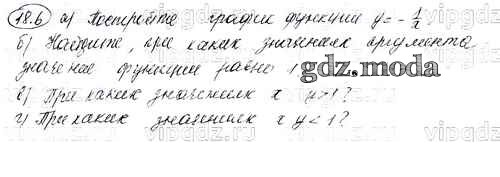 18.6 а) Постройте график функции y = - 1/x
б) Найдите, при каких значениях аргумента
значение функции равно 1
gdz.moda
в) При каких значениях x y > 1?
г) При каких значениях x y < 1?
vipgdz.ru